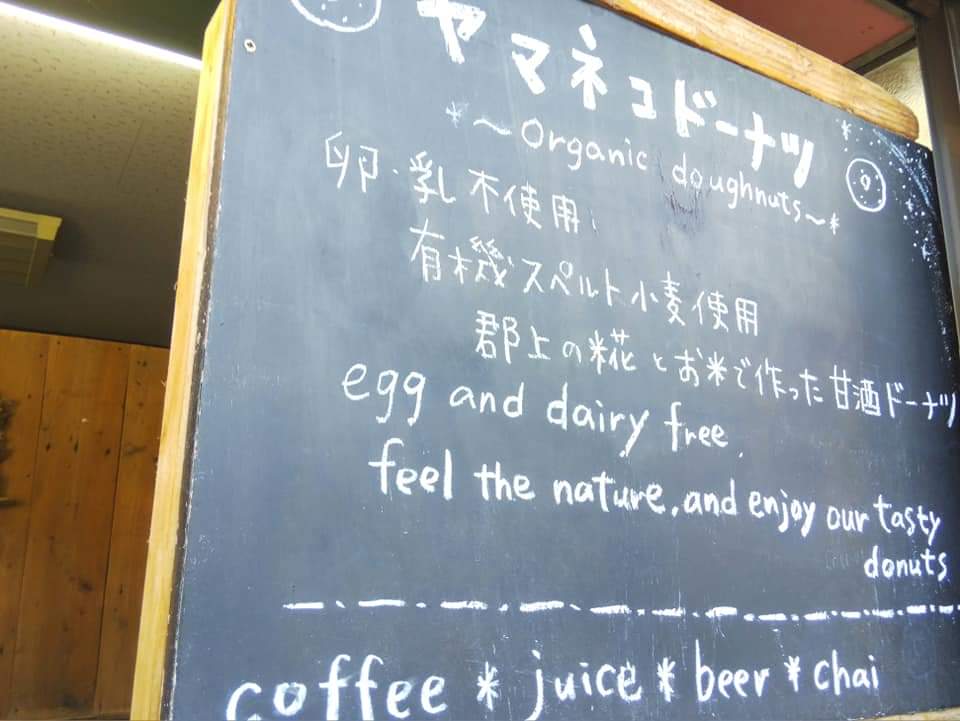 ヤマネコドーナツ
*~Organic doughnuts~*
卵・乳不使用
有機スペルト小麦使用
郡上の糀とお米で作った甘酒ドーナツ
egg and dairy free.
feel the nature, and enjoy our tasty
donuts
coffee * juice * beer * chai